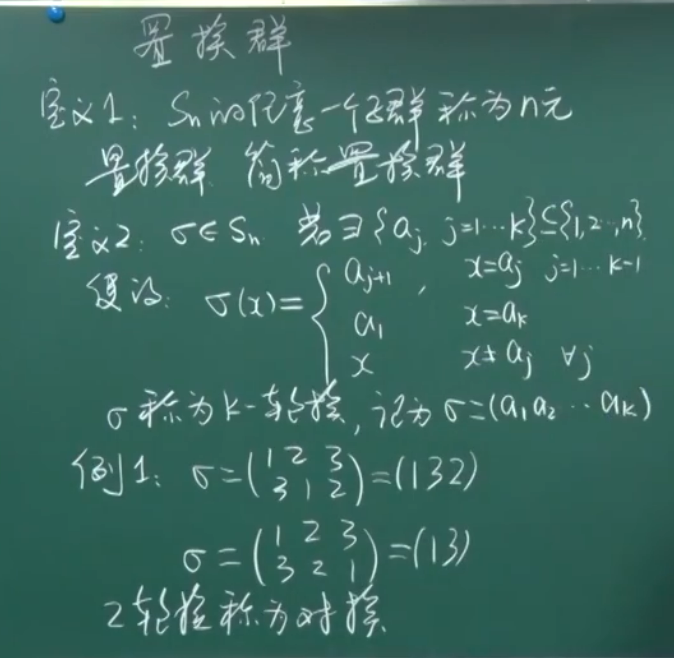 置换群
定义1: Sₙ的任意一个子群称为n元
置换群 简称置换群
定义2: σ∈Sₙ. 若∃{aⱼ, j=1⋯k}⊆{1,2⋯,n}
使得: σ(x)={ aⱼ₊₁, x=aⱼ j=1⋯k-1
a₁ x=aₖ
x x≠aⱼ ∀j
σ称为k-轮换, 记为σ=(a₁a₂⋯aₖ)
例1: σ=(1 2 3
3 1 2)=(132)
σ=(1 2 3
3 2 1)=(13)
2轮换称为对换